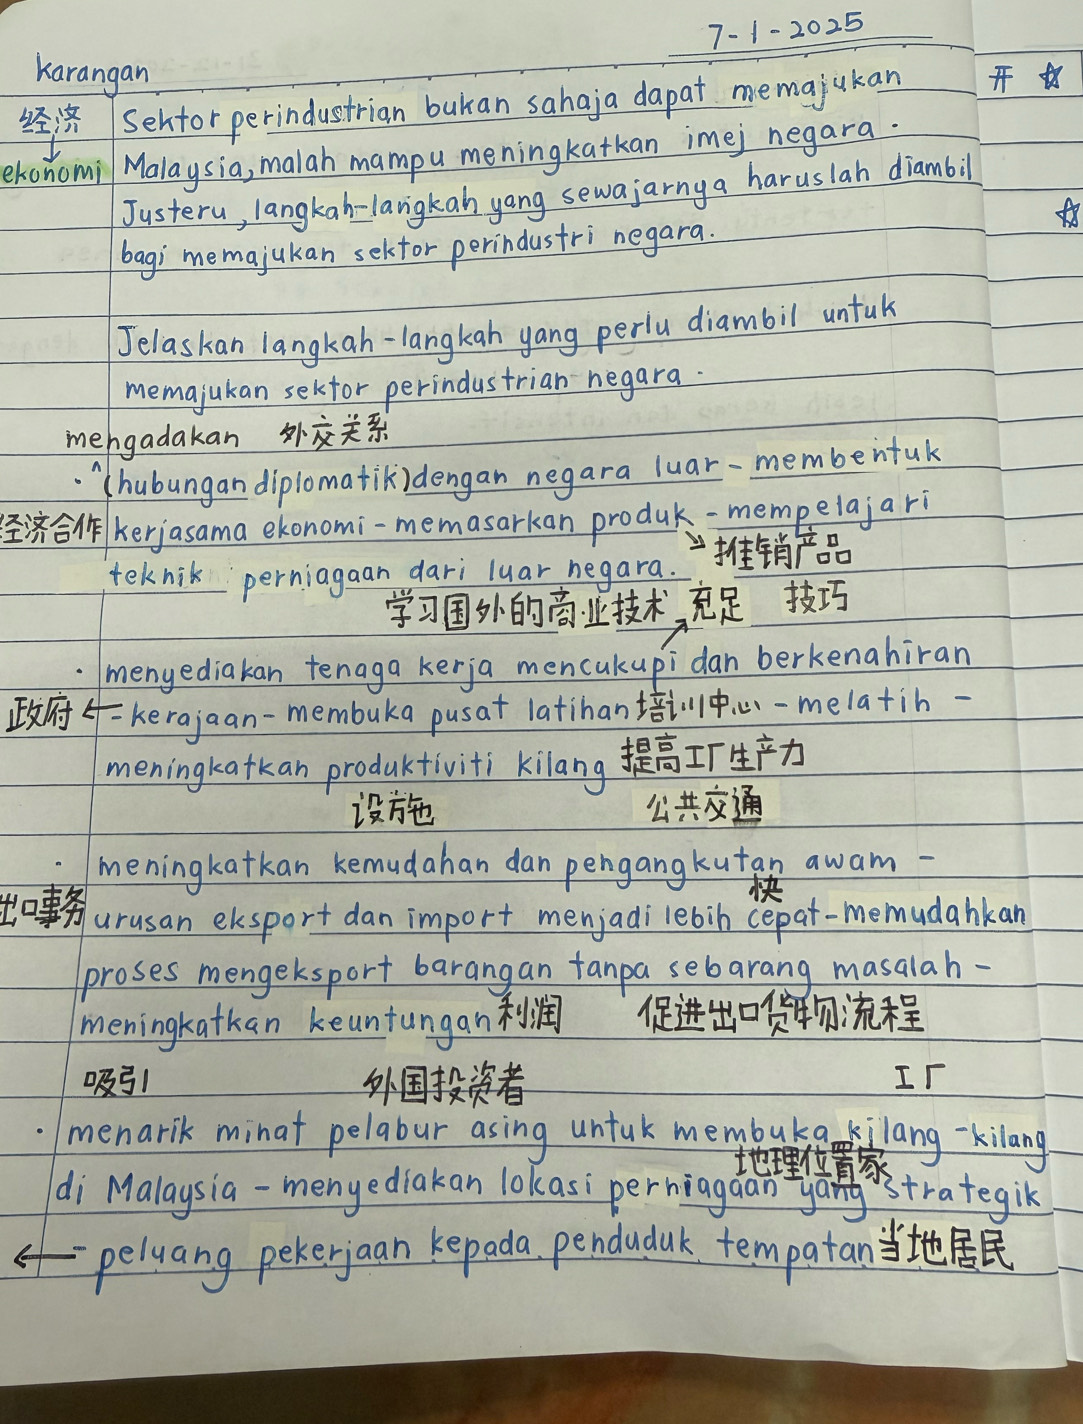 7-1-2025
karangan
开 ☆
经济 Sektor perindustrian bukan sahaja dapat memajukan
↓
ekonomi Malaysia, malah mampu meningkatkan imej negara.
Justeru, langkah-langkah yang sewajarnya haruslah diambil
☆
bagi memajukan sektor perindustri negara.
Jelaskan langkah-langkah yang perlu diambil untuk
memajukan sektor perindustrian negara.
mengadakan 外交关系
· ^(hubungan diplomatik) dengan negara luar - membentuk
经济合作 kerjasama ekonomi - memasarkan produk - mempelajari
↘推销产品
teknik perniagaan dari luar negara.
学习国外的商业技术 充足 技巧
· menyediakan tenaga kerja mencukupi dan berkenahiran
政府 ← - kerajaan - membuka pusat latihan 培训中心 - melatih -
meningkatkan produktiviti kilang 提高工厂生产力
设施 公共交通
· meningkatkan kemudahan dan pengangkutan awam -
快
出口事务 urusan eksport dan import menjadi lebih cepat - memudahkan
proses mengeksport barangan tanpa sebarang masalah -
meningkatkan keuntungan 利润 促进出口货物流程
吸引 外国投资者 工厂
· menarik minat pelabur asing untuk membuka kilang-kilang
地理位置家
di Malaysia - menyediakan lokasi perniagaan yang strategik
← - peluang pekerjaan kepada penduduk tempatan 当地居民